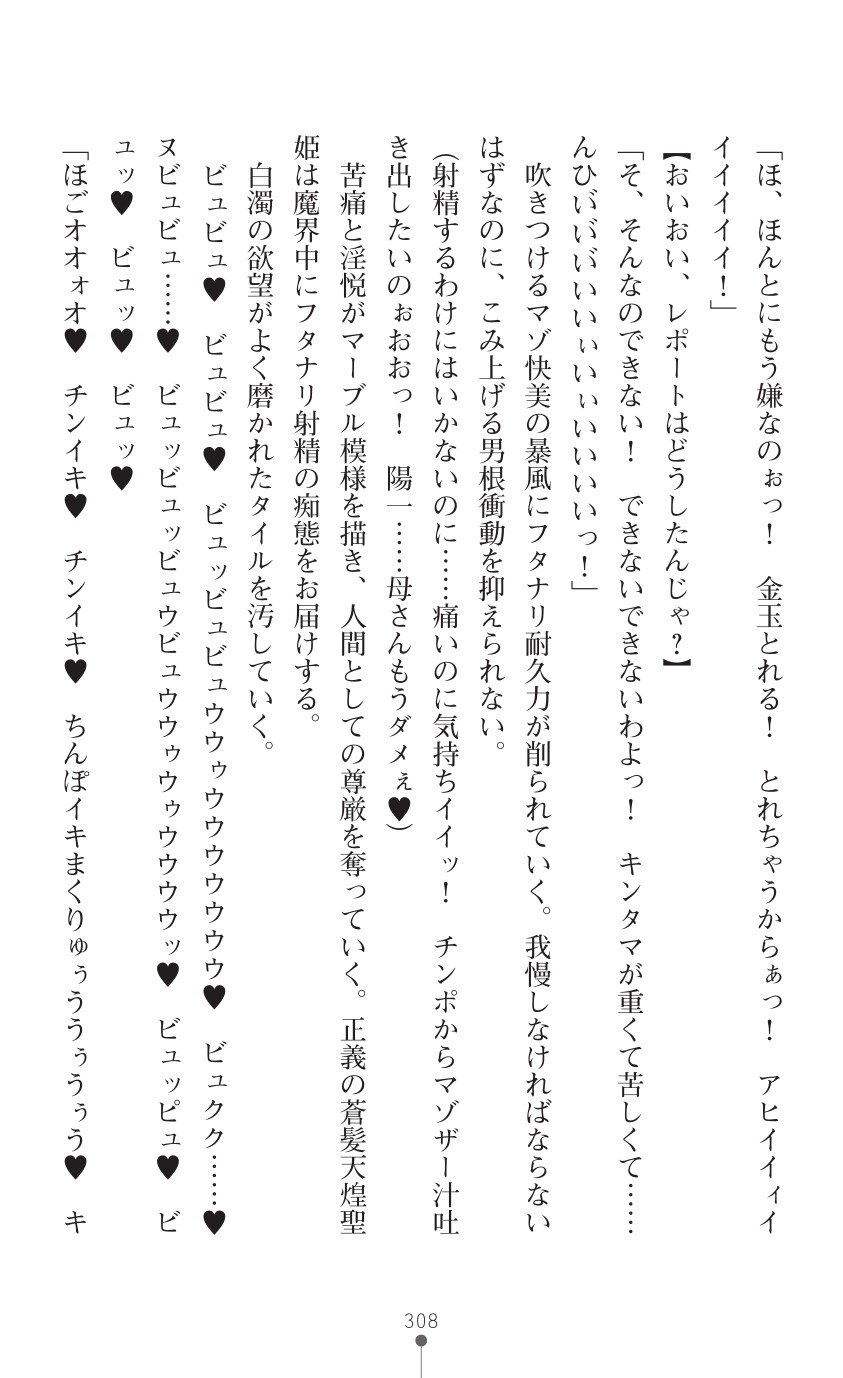 「ほ、ほんとにもう嫌なのぉっ！　金玉とれる！　とれちゃうからぁっ！　アヒイイィイ
イイイイイ！」
【おいおい、レポートはどうしたんじゃ？】
「そ、そんなのできない！　できないできないわよっ！　キンタマが重くて苦しくて……
んひぃいぃいいいぃいぃいいいいっ！」
　吹きつけるマゾ快美の暴風にフタナリ耐久力が削られていく。我慢しなければならない
はずなのに、こみ上げる男根衝動を抑えられない。
（射精するわけにはいかないのに……痛いのに気持ちイイッ！　チンポからマゾザー汁吐
き出したいのぉおおっ！　陽一……母さんもうダメぇ♥）
　苦痛と淫悦がマーブル模様を描き、人間としての尊厳を奪っていく。正義の蒼髪天煌聖
姫は魔界中にフタナリ射精の痴態をお届けする。
　白濁の欲望がよく磨かれたタイルを汚していく。
　ビュビュ♥　ビュビュ♥　ビュッビュビュウウゥウウウウウウウ♥　ビュクク……♥
ヌビュビュ……♥　ビュッビュッビュウビュウウゥウゥウウウウッ♥　ビュッピュ♥　ビ
ュッ♥　ビュッ♥　ビュッ♥
「ほごオオォオ♥　チンイキ♥　チンイキ♥　ちんぽイキまくりゅぅううぅうぅう♥　キ
308